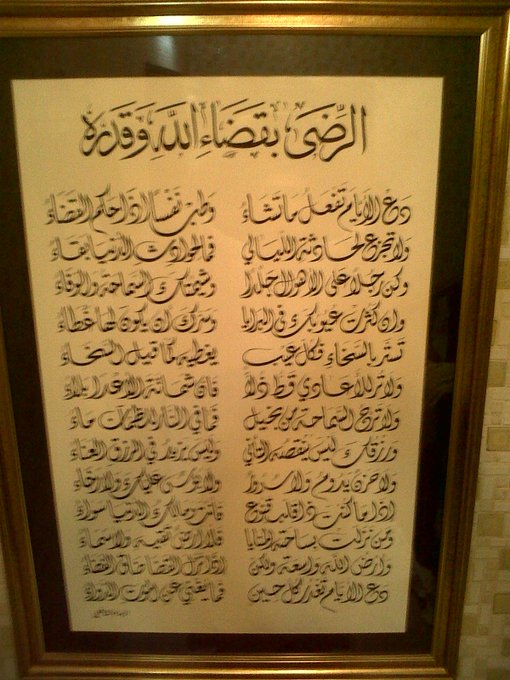 الرِّضَى بِقَضَاءِ اللَّهِ وَقَدَرِهِ
دع الأيام تفعل ما تشاء وطب نفسا إذا حكم القضاء
ولا تجزع لحادثة الليالي فما لحوادث الدنيا بقاء
وكن رجلا على الأهوال جلدا وشيمتك السماحة والوفاء
وإن كثرت عيوبك في البرايا وسرك أن يكون لها غطاء
تستر بالسخاء فكل عيب يغطيه كما قيل السخاء
ولا تر للأعادي قط ذلا فإن شماتة الأعدا بلاء
ولا ترج السماحة من بخيل فما في النار للظمآن ماء
ورزقك ليس ينقصه التأني وليس يزيد في الرزق العناء
ولا حزن يدوم ولا سرور ولا بؤس عليك ولا رخاء
إذا ما كنت ذا قلب قنوع فأنت ومالك الدنيا سواء
ومن نزلت بساحته المنايا فلا أرض تقيه ولا سماء
وأرض الله واسعة ولكن إذا نزل القضا ضاق الفضاء
دع الأيام تغدر كل حين فما يغني عن الموت الدواء